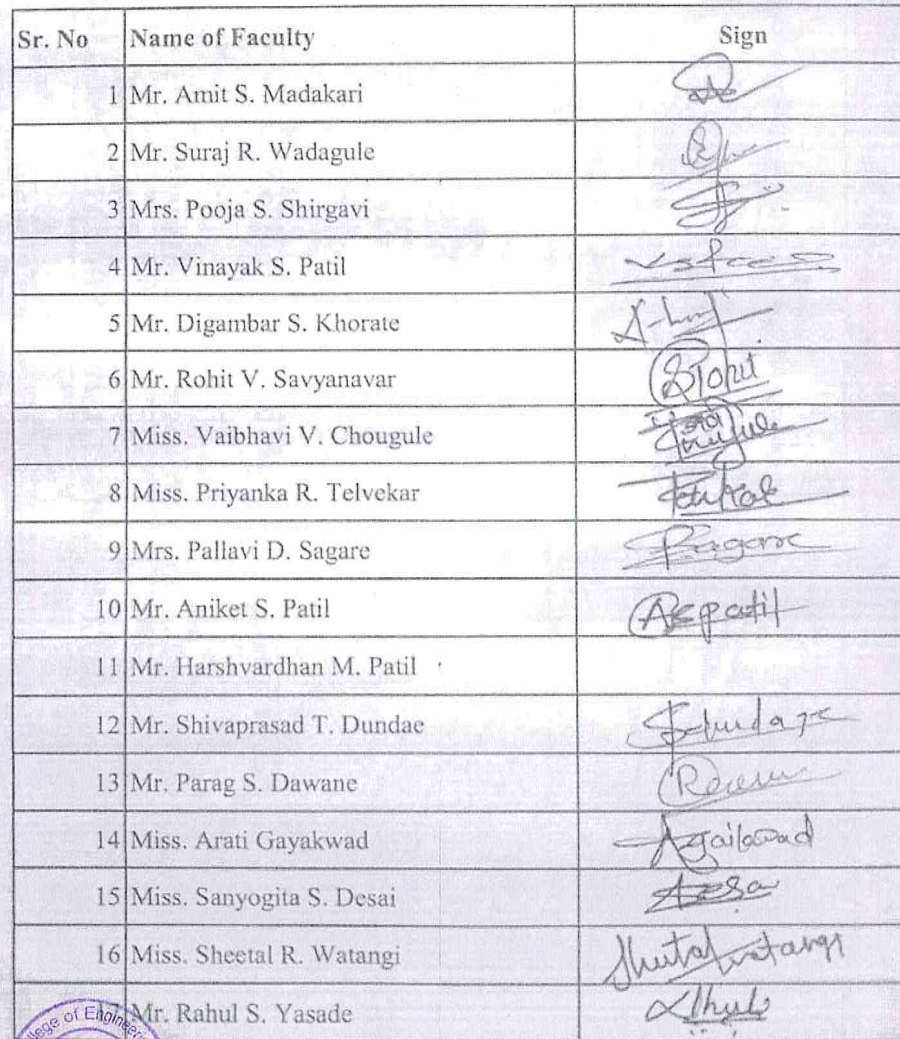 Sr. No Name of Faculty Sign
1 Mr. Amit S. Madakari
2 Mr. Suraj R. Wadagule
3 Mrs. Pooja S. Shirgavi
4 Mr. Vinayak S. Patil
5 Mr. Digambar S. Khorate
6 Mr. Rohit V. Savyanavar Rohit
7 Miss. Vaibhavi V. Chougule
8 Miss. Priyanka R. Telvekar
9 Mrs. Pallavi D. Sagare
10 Mr. Aniket S. Patil ASpatil
11 Mr. Harshvardhan M. Patil
12 Mr. Shivaprasad T. Dundae
13 Mr. Parag S. Dawane
14 Miss. Arati Gayakwad
15 Miss. Sanyogita S. Desai
16 Miss. Sheetal R. Watangi
17 Mr. Rahul S. Yasade
of Engineeri